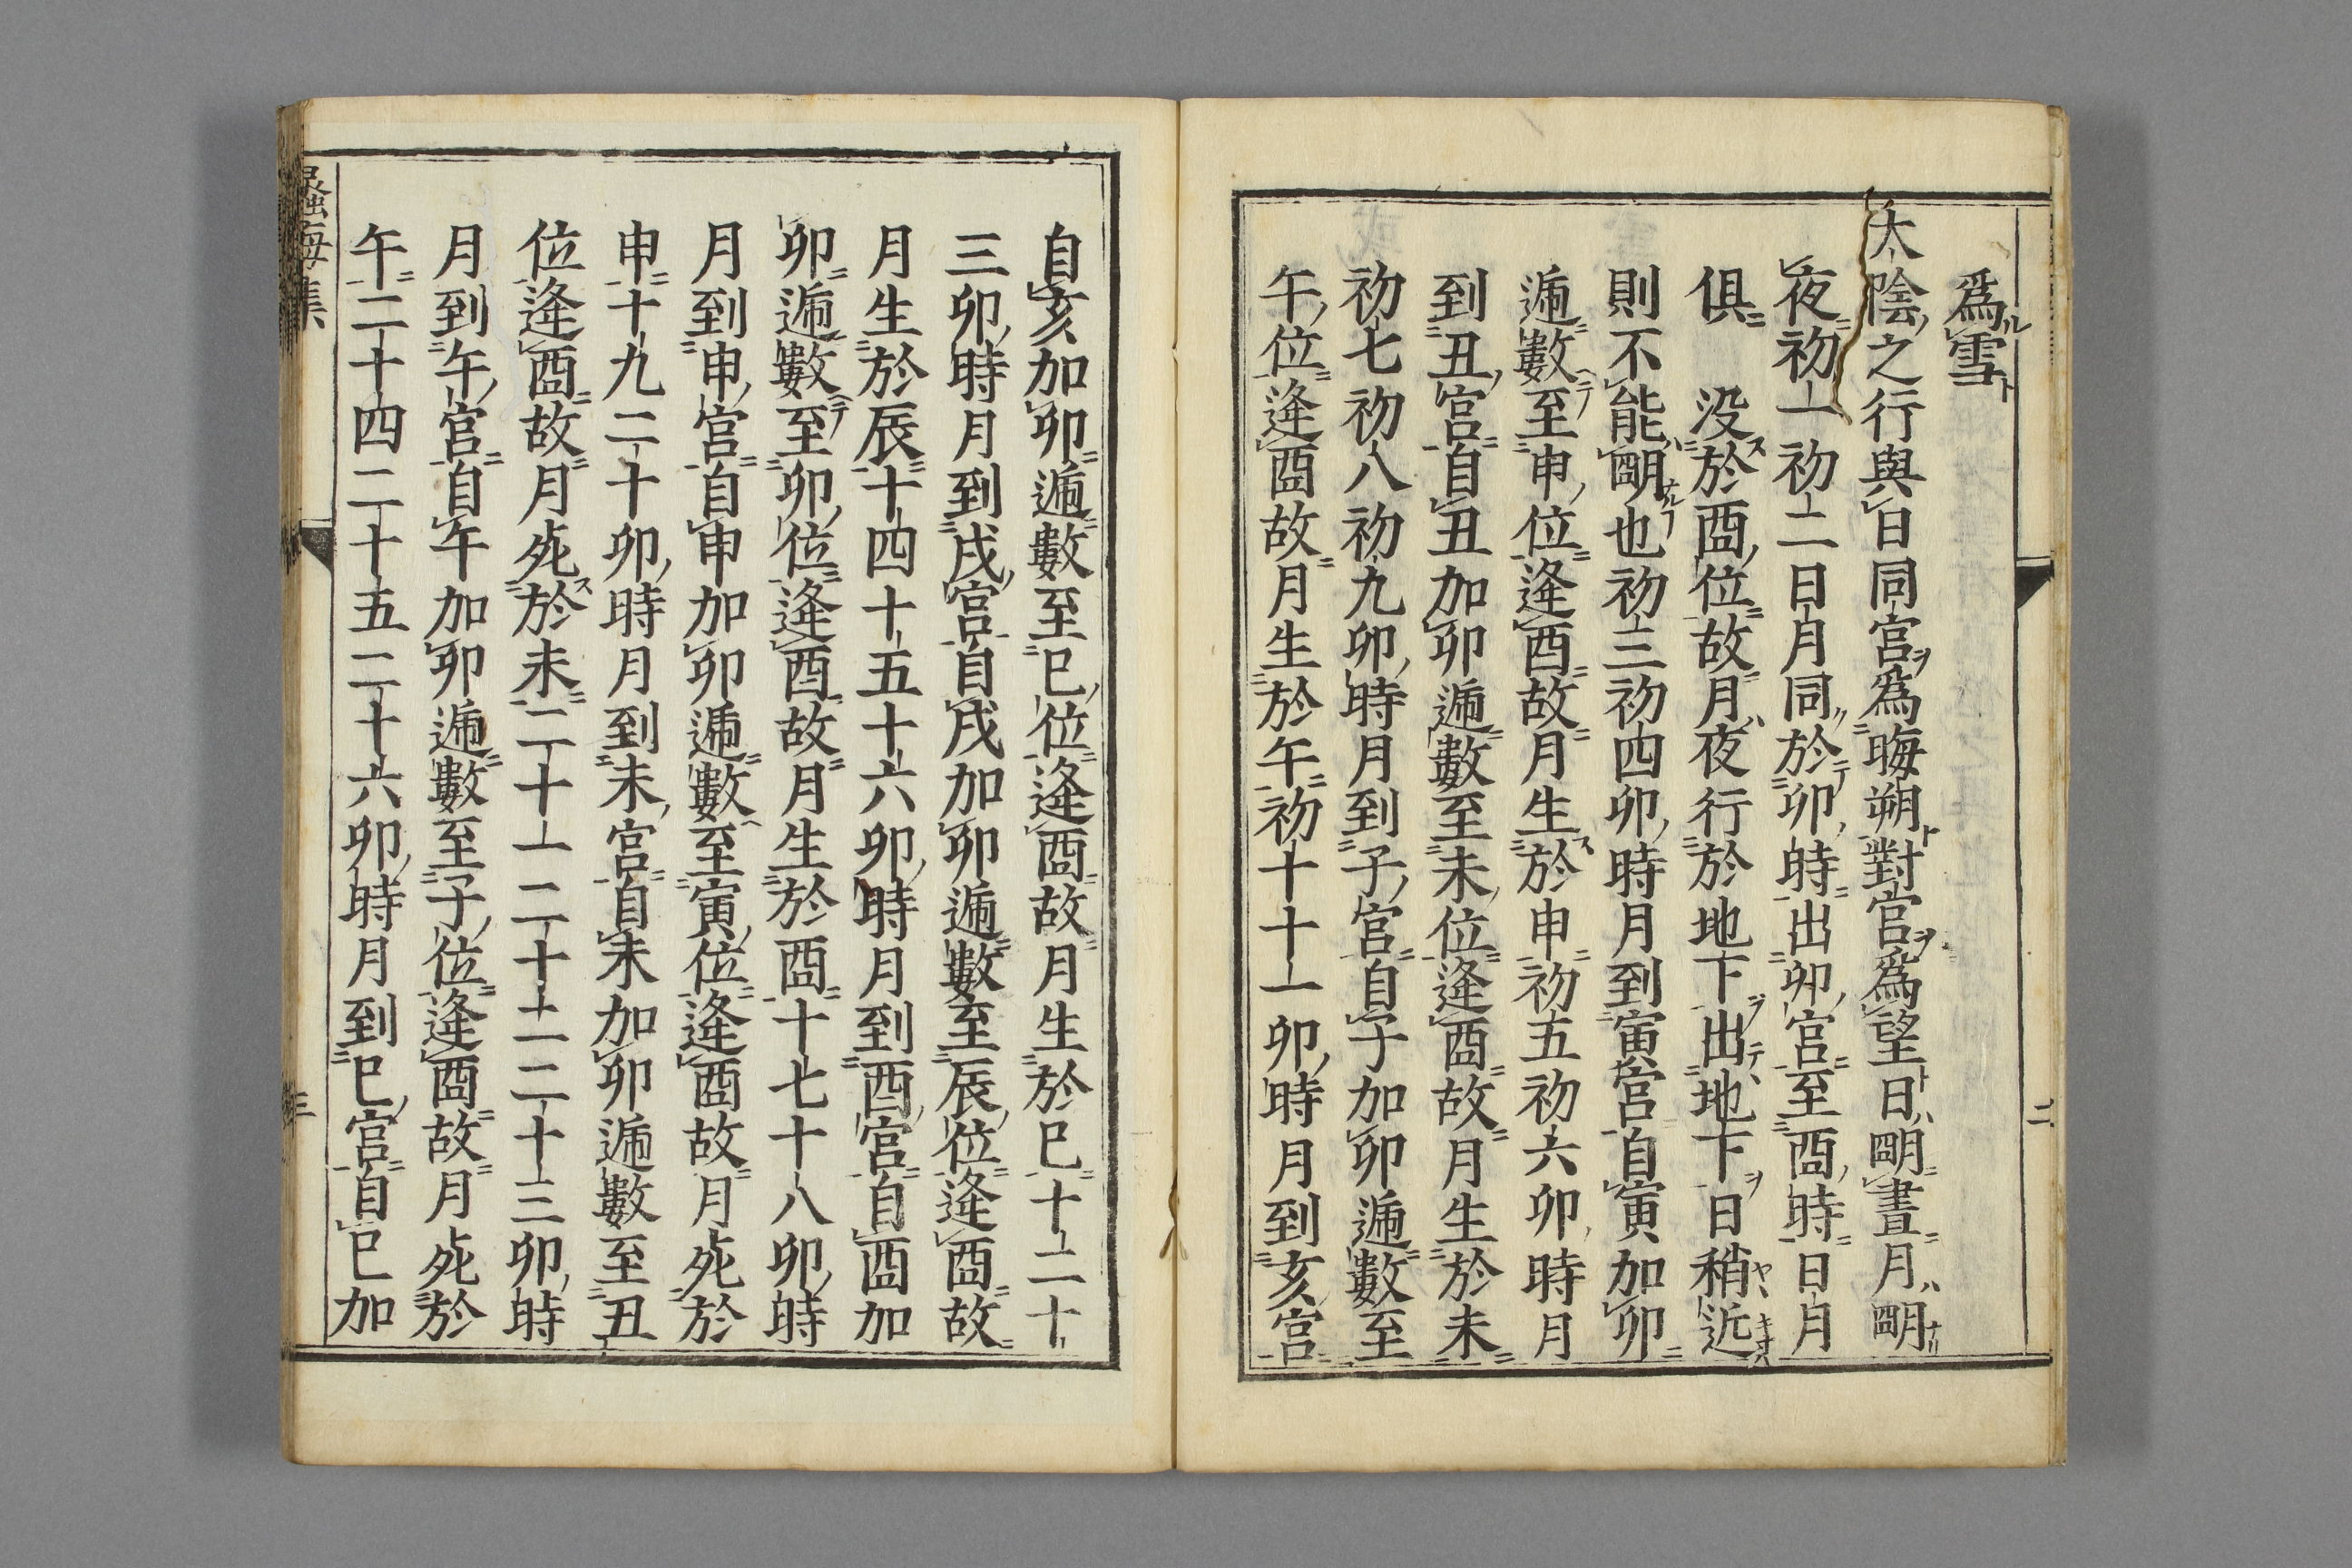 爲雪
太陰之行與日同宮爲晦朔對宮爲望日朙晝月朙
夜初一初二日月同於卯時出卯宮至酉時日月
俱　没於酉位故月夜行於地下出地下日稍近
則不能朙也初三初四卯時月到寅宮自寅加卯
遁數至申位逄酉故月生於申初五初六卯時月
到丑宮自丑加卯遁數至未位逄酉故月生於未
初七初八初九卯時月到子宮自子加卯遁數至
午位逄酉故月生於午初十十一卯時月到亥宮
二
自亥加卯遁數至巳位逄酉故月生於巳十二十
三卯時月到戌宮自戌加卯遁數至辰位逄酉故
月生於辰十四十五十六卯時月到酉宮自酉加
卯遁數至卯位逄酉故月生於酉十七十八卯時
月到申宮自申加卯遁數至寅位逄酉故月死於
申十九二十卯時月到未宮自未加卯遁數至丑
位逄酉故月死於未二十一二十二二十三卯時
月到午宮自午加卯遁數至子位逄酉故月死於
午二十四二十五二十六卯時月到巳宮自巳加
蠡海集
三